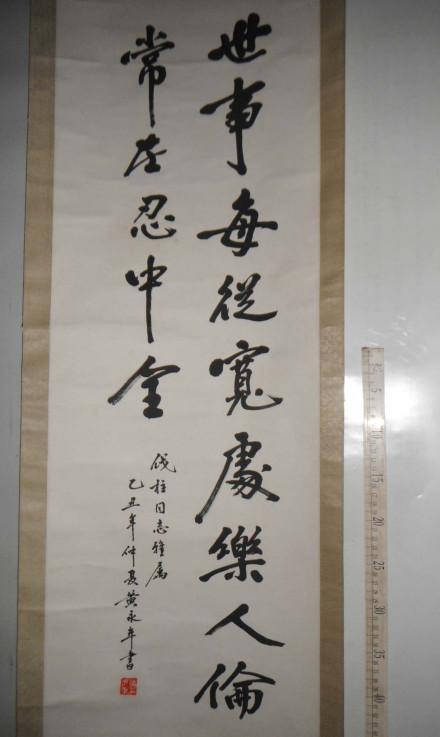 世事每從寬處樂人倫
常在忍中全
伐柱同志雅属
乙丑年仲夏黄永年書
5
10
15
20
25
30
35
40